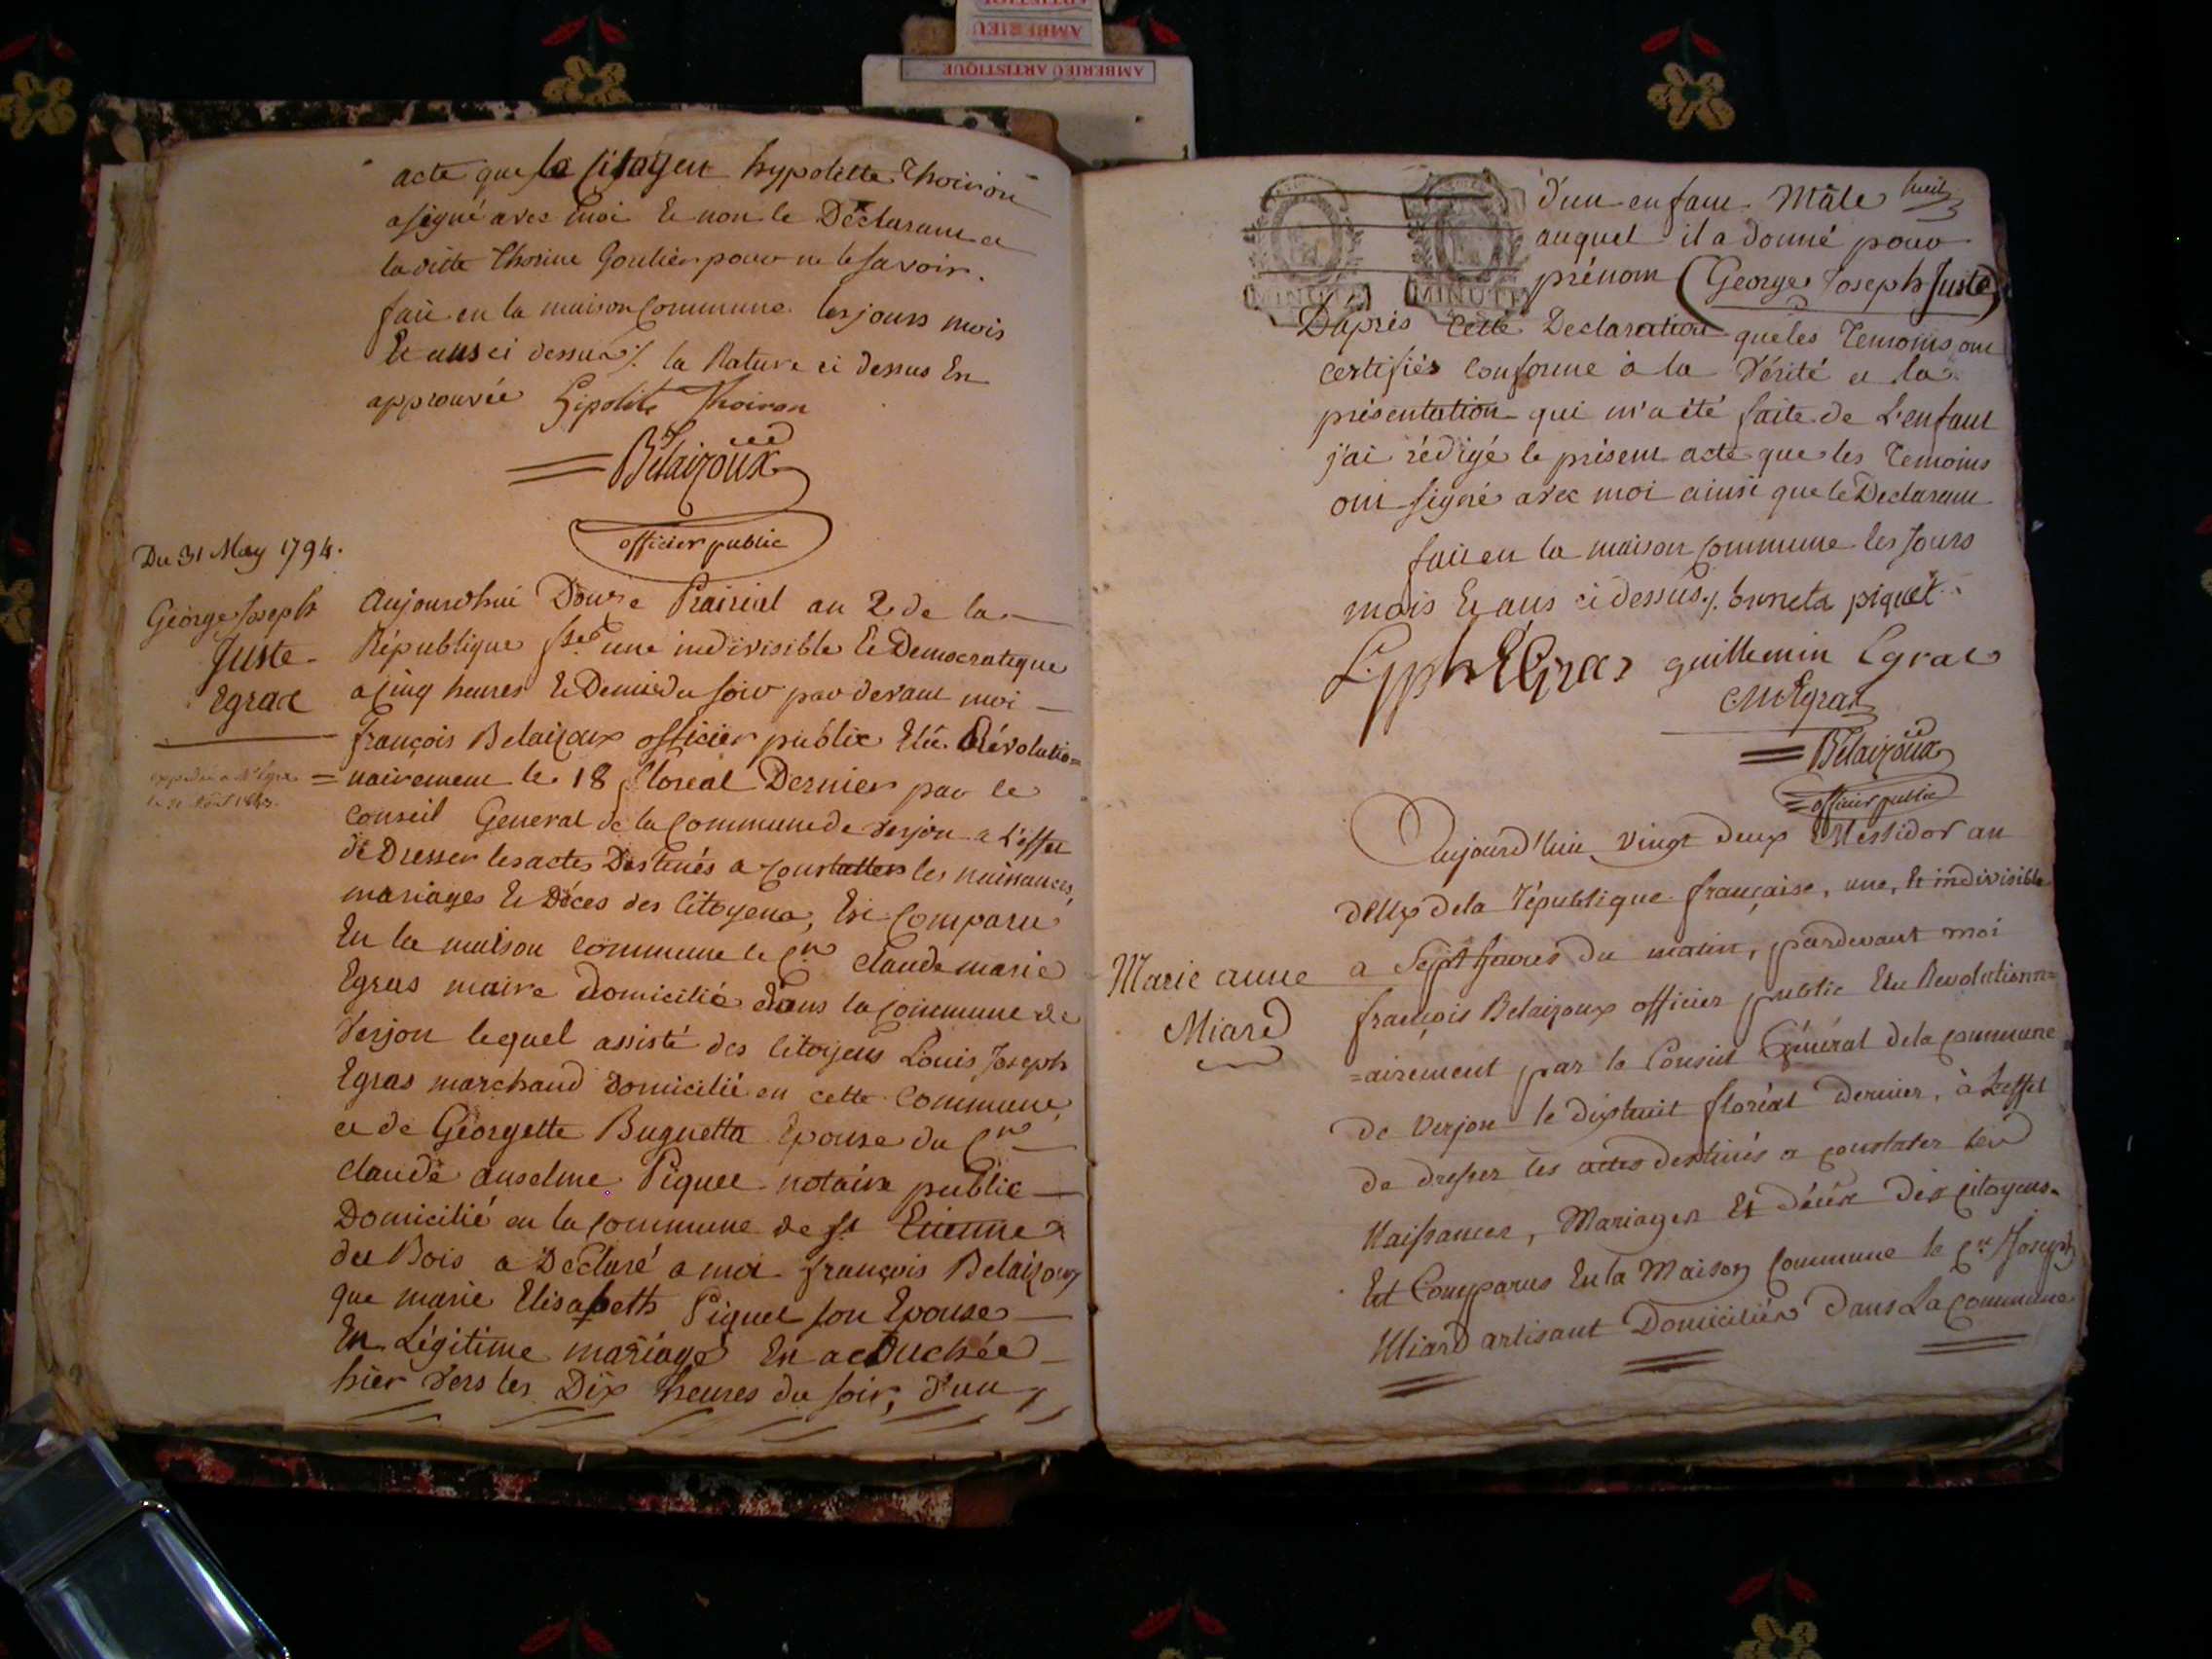 AMBERIEU
AMBERIEU ARTISTIQUE
acte que le Citoyen hypolitte Thoiron
a signé avec moi & non le Déclarant et
la ditte Thorine Goutier pour ne le savoir.
fait en la maison Commune les jours mois
& ans ci dessus ⁒ la Rature ci dessus En
approuvée Hipolite Thoiron
Bélaizoux
officier public
Du 31 May 1794.
George Joseph
Juste
Egraz
le 20 Août
Aujourdhui Douze Prairial an 2 de la
République f.se une indivisible & Democratique
a cinq heures & Demie du soir par devant moi
françois Belaizoux officier public Elu Révolutio=
=nairement le 18 floreal Dernier par le
Conseil General de la Commune de Verjon a L'effet
de Dresser les actes Destinés a constatter les naissances,
mariages & Déces des Citoyens, Est Comparu
En la maison Commune le C.en Claude marie
Egras maire domicilié dans la Commune de
Verjon lequel assisté des Citoyens Louis Joseph
Egras marchand domicilié en cette Commune,
et de Géorgette Buguetta Epouse du C.en
Claude anselme Piquet notaire public
Domicilié en la Commune de St Etienne
du Bois a Déclaré a moi françois Belaizoux
que marie Elisabeth Piquet son Epouse
En Légitime mariage En acouchée
hier vers les Dix heures du soir, d'un
MINUTE
MINUTE
d'un enfant Mâle huit
auquel il a donné pour
prénom (George Joseph Juste)
Daprès cette Declaration que les Temoins ont
certifiés Conforme à la Vérité et la
présentation qui m'a été faite de L'enfant
j'ai rédigé le présent acte que les Temoins
ont signé avec moi ainsi que le Declarant
fait en la maison Commune les Jours
mois & ans ci dessus ⁒ buneta piquet
L. Jph Egraz guillemin Egraz
CM Egraz
Bélaizoux
officier public
Aujourd'huy vingt deux Messidor an
deux de la république française, une, & indivisible
Marie anne
Miard
a Sept heures du matin, pardevant moi
françois Belaizoux officier public Elu Revolutionn=
=airement par le Conseil Général de la commune
de Verjon le dixhuit floréal dernier, à Leffet
de dresser les actes destinés a constater les
Naissances, Mariages Et décès des citoyens.
Est Comparus En la Maison Commune le C.en Joseph
Miard artisant Domiciliés dans La Commune